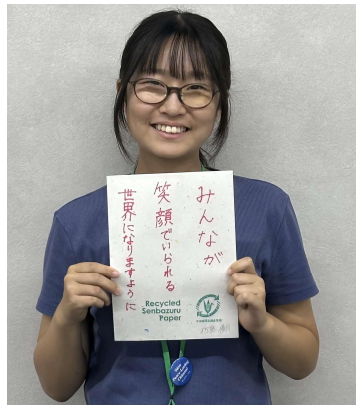 みんなが
笑顔でいられる
世界になりますように
Recycled
Senbazuru
Paper